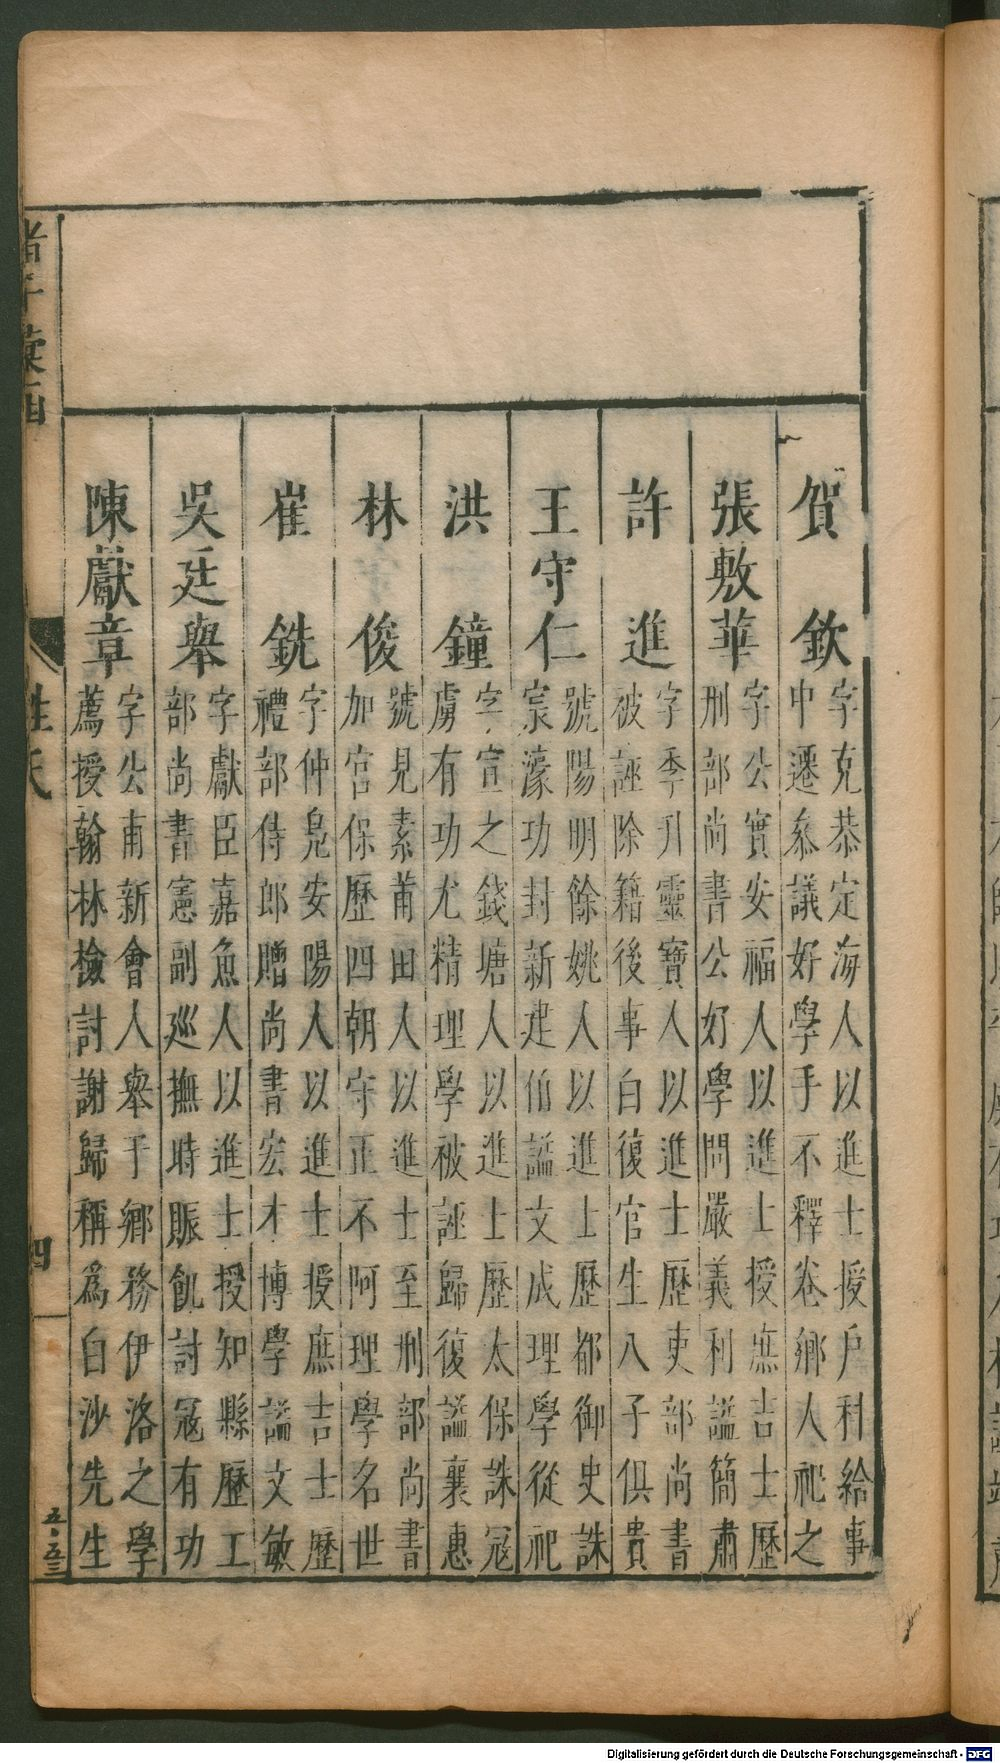 賀欽
字克恭定海人以進士授戶科給事
中遷叅議好學手不釋卷鄉人祀之
張敷華
字公實安福人以進士授庶吉士歷
刑部尚書公好學問嚴義利謚簡肅
許進
字季升靈寶人以進士歷吏部尚書
被誣除籍後事白復官生八子俱貴
王守仁
號陽明餘姚人以進士歷都御史誅
宸濠功封新建伯謚文成理學從祀
洪鐘
字宣之錢塘人以進士歷太保誅冦
虜有功尤精理學被誣歸復謚襄惠
林俊
號見素莆田人以進士至刑部尚書
加宮保歷四朝守正不阿理學名世
崔銑
字仲鳧安陽人以進士授庶吉士歷
禮部侍郎贈尚書宏才博學謚文敏
吳廷舉
字獻臣嘉魚人以進士授知縣歷工
部尚書憲副巡撫時賑飢討冦有功
陳獻章
字公甫新會人舉于鄉務伊洛之學
薦授翰林檢討謝歸稱為白沙先生
諸子彙函
姓氏
四
五·五三
Digitalisierung gefördert durch die Deutsche Forschungsgemeinschaft - DFG